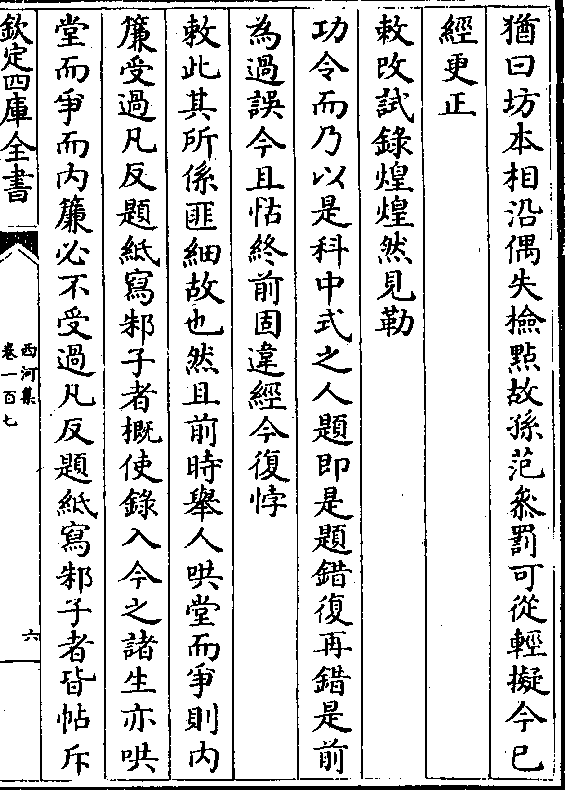 猶曰坊本相沿偶失撿㸃故孫范叅罰可從輕擬今已
經更正
敕改試錄煌煌然見勒
功令而乃以是科中式之人題即是題錯復再錯是前
為過誤今且怙終前固違經今復悖
敕此其所係匪細故也然且前時舉人哄堂而爭則内
簾受過凡反題紙寫邾子者概使錄入今之諸生亦哄
堂而爭而内簾必不受過凡反題紙寫邾子者皆帖斥
欽定四庫全書
西河集
卷一百七
六